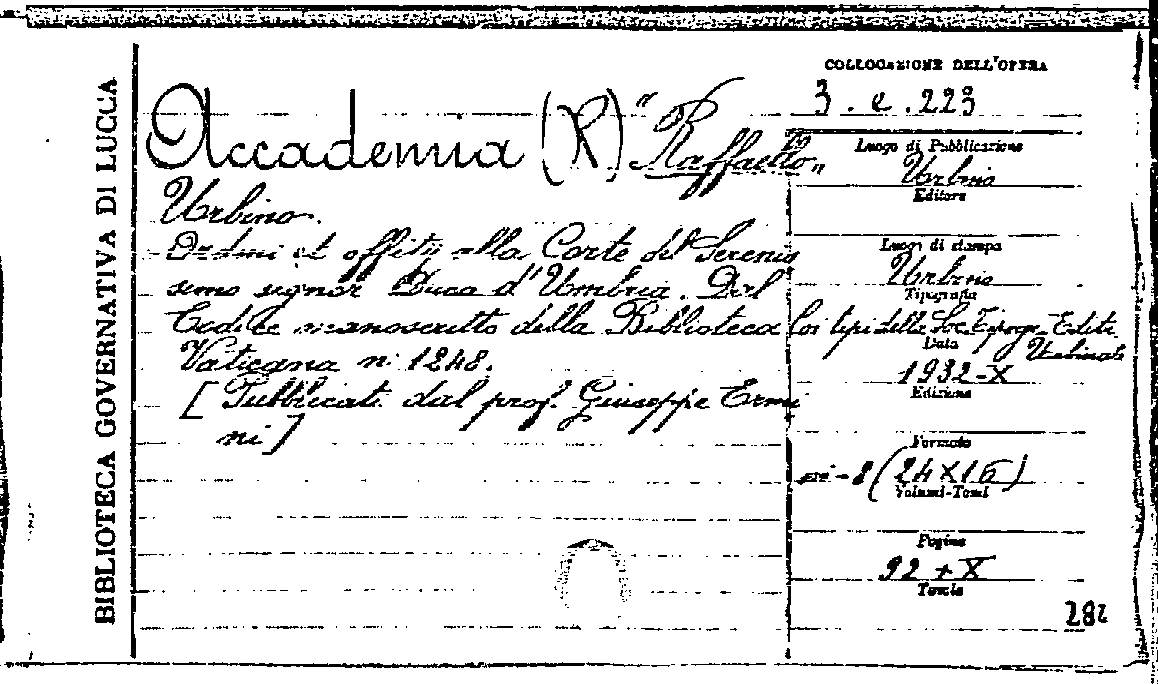 BIBLIOTECA GOVERNATIVA DI LUCCA
COLLOCAZIONE DELL'OPERA
3. e. 223
Accademia (R) "Raffaello"
Urbino.
Ordini et offitij alla Corte del Serenis
simo signor Duca d'Urnbria. Dal
Codice manoscritto della Biblioteca
Vaticana n. 1248.
[Pubblicati dal prof. Giuseppe Ermi
ni]
Luogo di Pubblicazione
Urbino
Editore
Luogo di stampa
Urbino
Tipografia
Coi tipi della Soc. Tipogr. Editr.
Urbinate
Data
1932-X
Edizione
Formato
in-8 (24X16)
Volumi-Tomi
Pagine
92 + X
Tavole
282